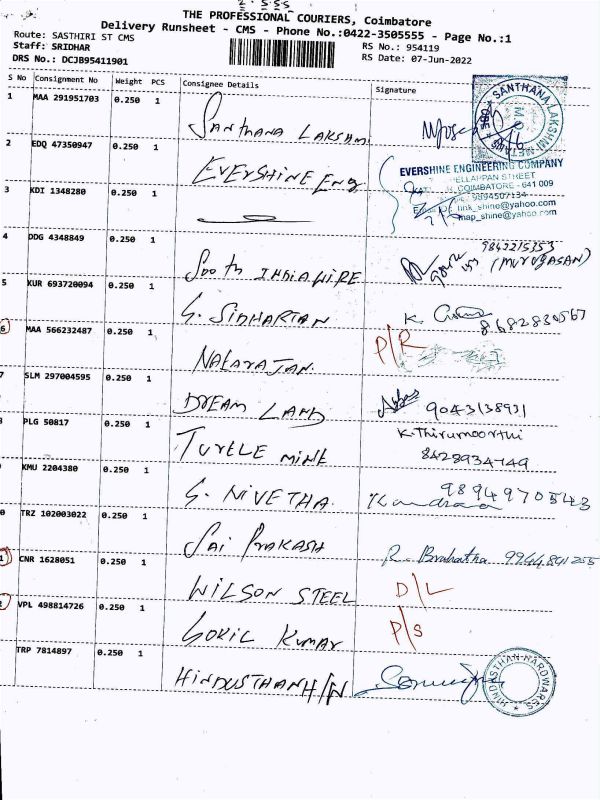 THE PROFESSIONAL COURIERS, Coimbatore
Delivery Runsheet - CMS - Phone No.:0422-3505555 - Page No.:1
Route: SASTHIRI ST CMS
RS No.: 954119
Staff: SRIDHAR
RS Date: 07-Jun-2022
DRS No.: DCJB95411901
S No Consignment No Weight PCS Consignee Details Signature
1 MAA 291951703 0.250 1 SANTHANA LAKSHMI
SANTHANA LAKSHMI METALS
2 EDQ 47350947 0.250 1 EVERSHINE Eng
EVERSHINE ENGINEERING COMPANY
ELLAPPAN STREET
COIMBATORE - 641 009
3 KDI 1348280 0.250 1
9894507134
hnk_shine@yahoo.com
map_shine@yahoo.com
4 DDG 4348849 0.250 1 South INDIA WIRE
9842215353
(MURUGASAN)
5 KUR 693720094 0.250 1 G. SIDHARTAN K
8682830567
6 MAA 566232487 0.250 1 NATARAJAN P/R
7 SLM 297004595 0.250 1 DREAM LAND 9043138931
PLG 50817 0.250 1 TURTLE MINT K.Thirumoorthi
8428934749
KMU 2204380 0.250 1 G. NIVETHA
9894970543
0 TRZ 102003022 0.250 1 SAI PRAKASH R. 9944891255
1 CNR 1628051 0.250 1 WILSON STEEL D/L
2 VPL 498814726 0.250 1 GOKIL KUMAR P/S
TRP 7814897 0.250 1 HINDUSTHAN H/W
HINDUSTHAN HARDWARES